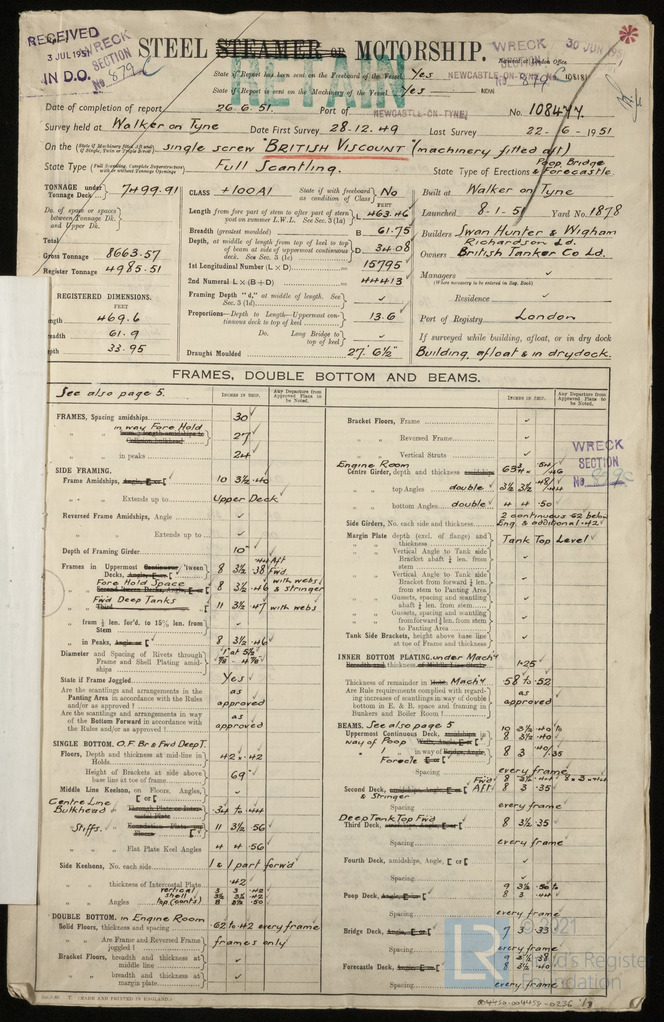 RECEIVED
3 JUL 1951
IN D.O.
WRECK
SECTION
No 879 C
STEEL STEAMER OR MOTORSHIP.
WRECK
SECTION
30 JUN 1951
Received at London Office
State if Report has been sent on the Freeboard of the Vessel Yes
NEWCASTLE-ON-TYNE No.
State if Report is sent on the Machinery of the Vessel Yes
RETAIN
Date of completion of report 26.6.51. Port of NEWCASTLE-ON-TYNE No. 108477.
Survey held at Walker on Tyne Date First Survey 28-12.49 Last Survey 22-6-1951
On the (State if Machinery fitted Aft and if Single, Twin or Triple Screw) single screw "BRITISH VISCOUNT" (machinery fitted aft)
State Type (Full Scantling, Complete Superstructure with or without Tonnage Openings) Full Scantling.
State Type of Erections Poop Bridge & Forecastle.
TONNAGE under Tonnage Deck 7499.91
Do. of space or spaces between Tonnage Dk. and Upper Dk.
Total
Gross Tonnage 8663.57
Register Tonnage 4985.51
REGISTERED DIMENSIONS.
FEET
ngth 469.6
eadth 61.9
pth 33.95
CLASS +100A1 State if with freeboard as condition of Class No
FEET
Length from fore part of stem to after part of stern post on summer L.W.L. See Sec. 3 (1a) L 463.46
Breadth (greatest moulded) B 61.75
Depth, at middle of length from top of keel to top of beam at side of uppermost continuous deck. See Sec. 3 (1c) D 34.08
1st Longitudinal Number (L × D) 15795
2nd Numeral L × (B + D) 44413
Framing Depth "d," at middle of length. See Sec. 3 (1d)
Proportions—Depth to Length—Uppermost continuous deck to top of keel 13.6
Do. Long Bridge to top of keel
Draught Moulded 27' 6½"
Built at Walker on Tyne
Launched 8-1-51 Yard No. 1878
Builders Swan Hunter & Wigham Richardson Ld.
Owners British Tanker Co Ld.
Managers
(Where necessary to be entered in Reg. Book)
Residence
Port of Registry London
If surveyed while building, afloat, or in dry dock
Building, afloat & in drydock.
FRAMES, DOUBLE BOTTOM AND BEAMS.
See also page 5.
INCHES IN SHIP.
Any Departure from Approved Plans to be Noted.
FRAMES, Spacing amidships 30
in way Fore Hold 27
" in peaks 24
SIDE FRAMING.
Frame Amidships, Angle, E or [ 10 3½ .40
" " Extends up to Upper Deck
Reversed Frame Amidships, Angle
" " Extends up to
Depth of Framing Girder 10"
Frames in Uppermost Continuous 'tween Decks, Angle, E or [ 8 3½ .38 .44 Aft Fwd.
Fore Hold Space
Second 'tween Decks, Angle, E or [ 8 3½ .46 with webs & stringer
Fwd Deep Tanks
Third 11 3½ .47 with webs
" from ⅕ len. for'd. to 15% len. from Stem
" in Peaks, Angle or [ 8 3½ .46
Diameter and Spacing of Rivets through Frame and Shell Plating amidships 1" at 5½ ⅞" - 4⅞"
State if Frame Joggled Yes
Are the scantlings and arrangements in the Panting Area in accordance with the Rules and/or as approved? as approved
Are the scantlings and arrangements in way of the Bottom Forward in accordance with the Rules and/or as approved? as approved
SINGLE BOTTOM. O.F. Br & Fwd Deep T.
Floors, Depth and thickness at mid-line in Holds 42 × .42
Height of Brackets at side above base line at toe of frame 69
Middle Line Keelson, on Floors, Angles, [ or [
Centre Line Bulkhead Through Plate or Intercostal Plate .34 to .44
Stiffs. Foundation Plate on Floors [ 11 3½ .56
" Flat Plate Keel Angles 4 4 .56
Side Keelsons, No. each side 1 & 1 part forw'd
" thickness of Intercostal Plate .42
" Angles vertical 3 3 .42
shell 3½ 3½ .42
top (cont's) 8 3½ .50
DOUBLE BOTTOM. in Engine Room
Solid Floors, thickness and spacing .62 to .42 every frame
" Are Frame and Reversed Frame joggled? frames only
Bracket Floors, breadth and thickness at middle line
" breadth and thickness at margin plate
INCHES IN SHIP.
Any Departure from Approved Plans to be Noted.
Bracket Floors, Frame
" " Reversed Frame
" " Vertical Struts
Engine Room
Centre Girder, depth and thickness amidships 63¾ × .54/.46
" top Angles double 3½ 3½ .48/.44
" bottom Angles double 4 4 .50
Side Girders, No. each side and thickness 2 continuous .62 below Eng & additional .42
WRECK
SECTION
No 879 C
Margin Plate depth (excl. of flange) and thickness Tank Top Level
" Vertical Angle to Tank side Bracket abaft ¼ len. from stem
" Vertical Angle to Tank side Bracket from forward ¼ len. from stem to Panting Area
" Gussets, spacing and scantling abaft ¼ len. from stem
" Gussets, spacing and scantling from forward ¼ len. from stem to Panting Area
Tank Side Brackets, height above base line at toe of Frame and thickness
INNER BOTTOM PLATING. under Mach'y
Breadth and thickness of Middle Line Strake 1.25
Thickness of remainder in Hold. Mach'y .58 to .52
Are Rule requirements complied with regarding increases of scantlings in way of double bottom in E. & B. space and framing in Bunkers and Boiler Room? as approved
BEAMS. See also page 5
Uppermost Continuous Deck, amidships in way of Poop 10 3½ .40 to 8 3½ .40
" " in way of Bridge, Angle, E or [ Forecle 8 3 .40/.35
Spacing every frame
Second Deck, amidships, Angle, E or [ & Stringer Fwd 8 3½ .44 8 × 3 × .44 Aft 8 3 .35
Spacing every frame
Deep Tank Top Fwd
Third Deck, amidships, Angle, E or [ 8 3½ .35
Spacing every frame
Fourth Deck, amidships, Angle, [ or [
Spacing
Poop Deck, Angle, E or [ 9 3½ .50 to 8 3 .44
Spacing every frame
Bridge Deck, Angle, E or [ 7 3 .33
Spacing every frame
Forecastle Deck, Angle, E or [ 9 3½ .38 8 3½ .40
Spacing every frame
(MADE AND PRINTED IN ENGLAND.)
LR
© 2021
Lloyd's Register
Foundation
004450-004459-0236 1/3